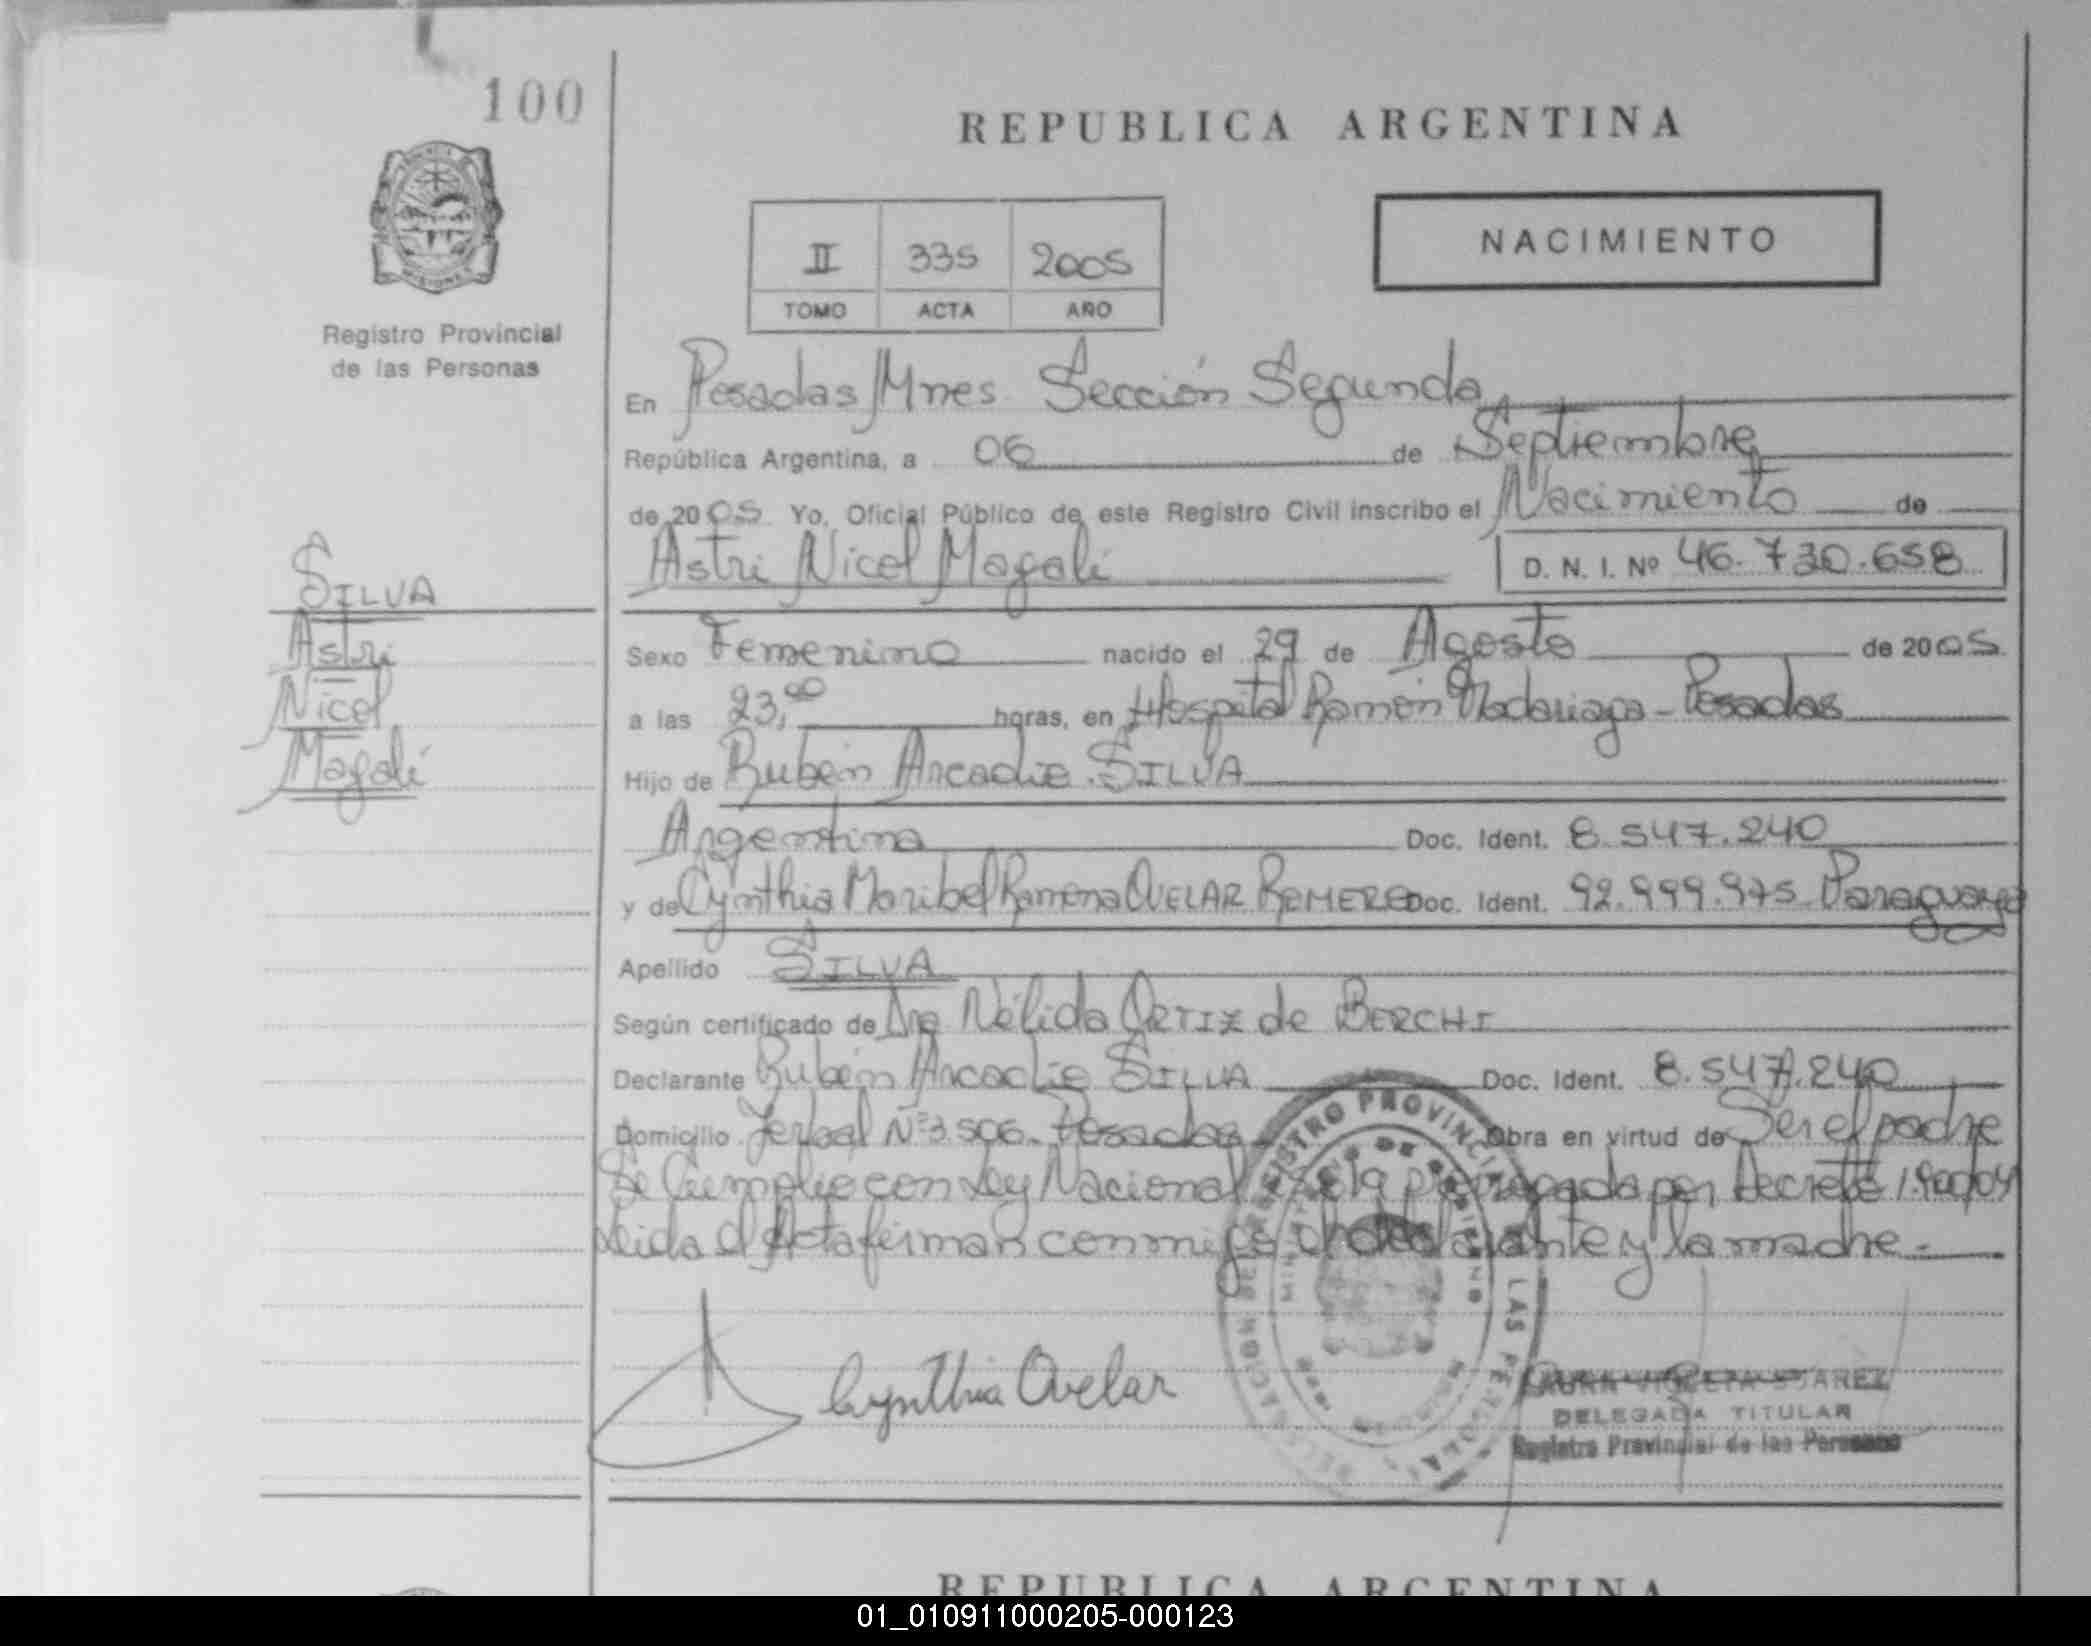 100
REPUBLICA ARGENTINA
II 335 2005
TOMO ACTA AÑO
NACIMIENTO
Registro Provincial
de las Personas
En Posadas Mnes. Sección Segunda
República Argentina, a 06 de Septiembre
de 2005 Yo, Oficial Público de este Registro Civil inscribo el Nacimiento de
Astri Nicol Magalí D. N. I. Nº 46.730.658
SILVA
Astri
Nicol
Magalí
Sexo Femenino nacido el 29 de Agosto de 2005
a las 23,00 horas, en Hospital Ramón Madariaga - Posadas
Hijo de Rubén Arcadio SILVA
Argentina Doc. Ident. 8.547.240
y de Cynthia Maribel Ramona OVELAR ROMERO Doc. Ident. 92.999.975 Paraguaya
Apellido SILVA
Según certificado de Dra Nélida ORTIZ de BERCHI
Declarante Rubén Arcadio SILVA Doc. Ident. 8.547.240
Domicilio Yerbal Nº 3.506. Posadas Obra en virtud de Ser el padre
Se Cumplio con Ley Nacional por Decreto
Leida el Acta firman conmigo el declarante y la madre.-
Cynthia Ovelar
SUAREZ
DELEGADA TITULAR
Registro Provincial de las Personas
REPUBLICA ARGENTINA
01_010911000205-000123